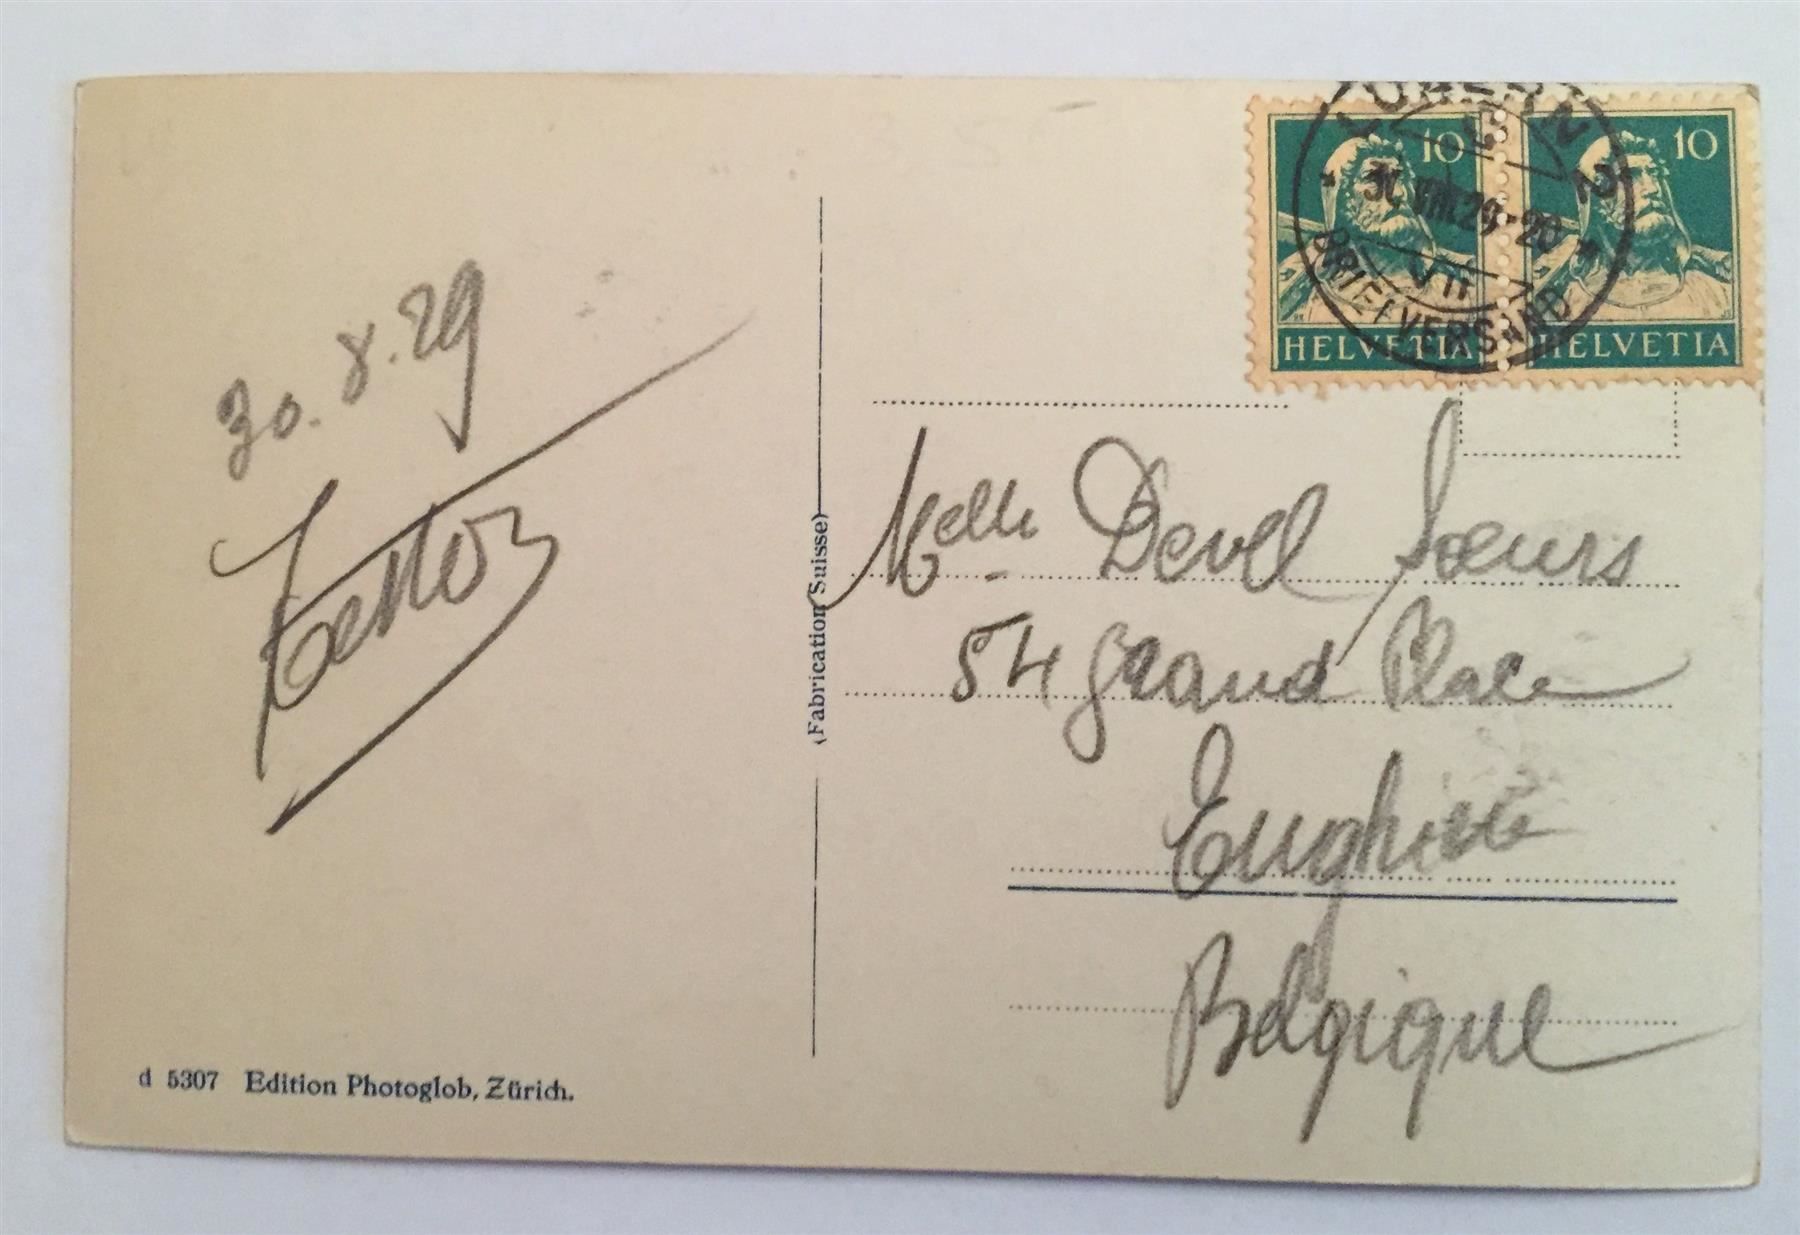 30.8.29
(Fabrication Suisse)
d 5307 Edition Photoglob, Zürich.
10
10
HELVETIA
HELVETIA
LUZERN 2
30.VIII.29-20
BRIEFVERSAND
Melle Devel Sœurs
54 Grand Place
Enghien
Belgique